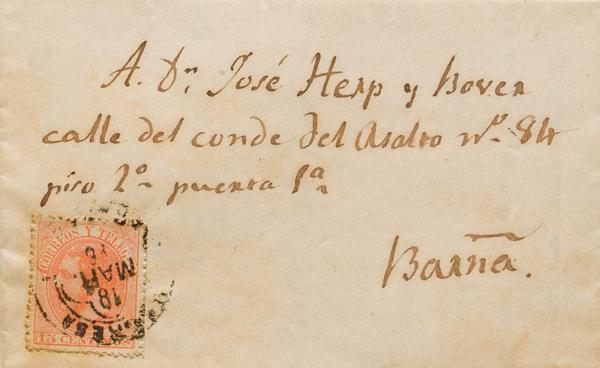 A. Dn. José Herp y Bover
calle del conde del Asalto nº 84
piso 2º puerta 1ª
Barña.
CORREOS Y TELEG
18
MAR
15 CENTIMOS